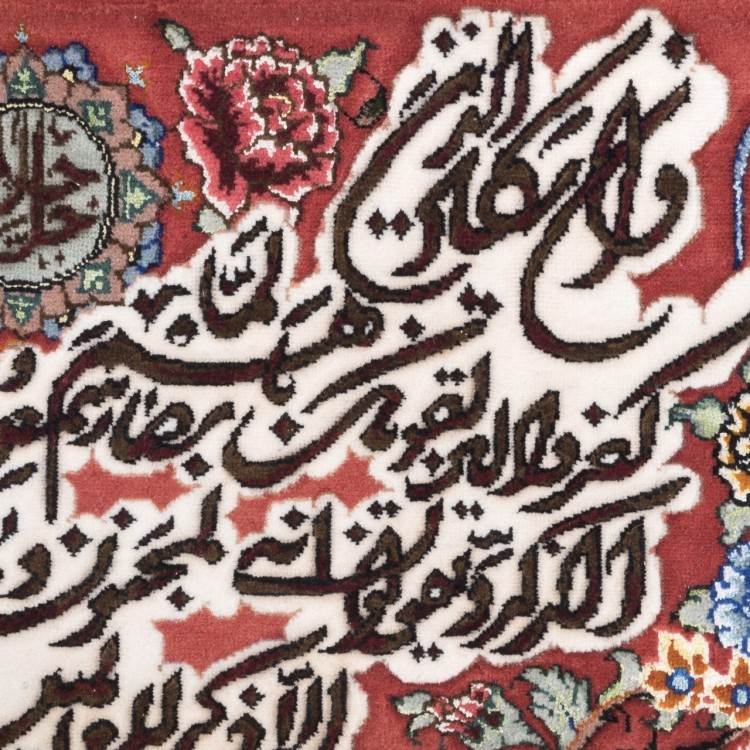 وان یکاد الذین
کفروا لیزلقونک بابصارهم لما
الذکر و یقولون انه لمجنون و
الا ذکر